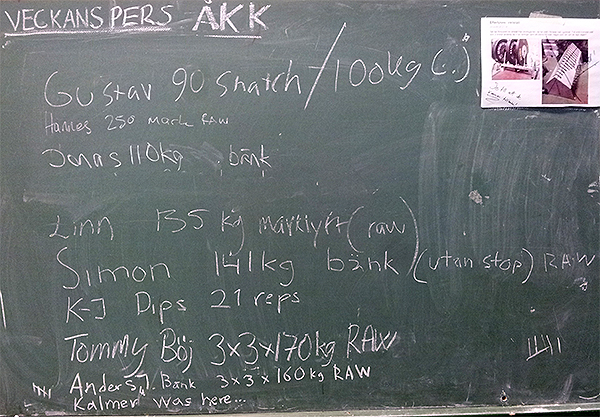 VECKANS PERS ÅKK
Gustav 90 Snatch / 100kg (.)
Hannes 250 Mark RAW
Jonas 110kg bänk
Linn 135 kg marklyft (raw)
Simon 141kg bänk (utan stop) RAW
K-J Dips 21 reps
Tommy Böj 3x3x170kg RAW
Anders J. Bänk 3x3x160kg RAW
Kalmer was here...